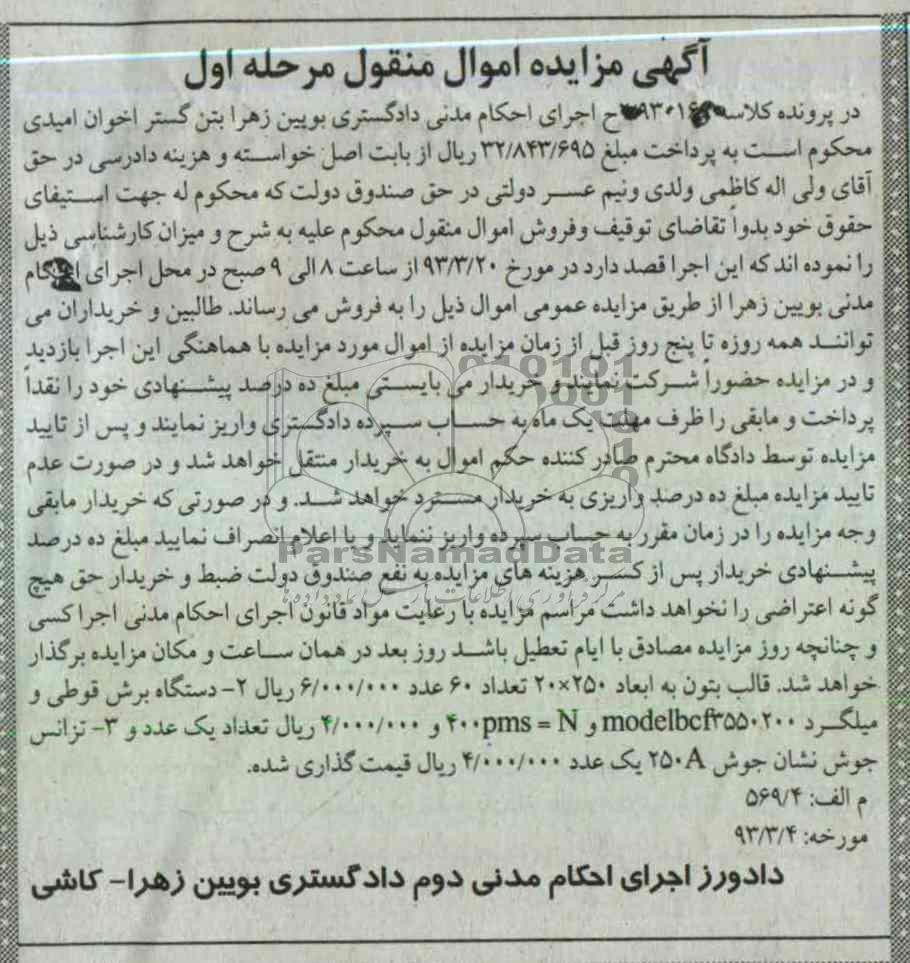 آگهی مزایده اموال منقول مرحله اول
در پرونده کلاسه ح اجرای احکام مدنی دادگستری بویین زهرا بتن گستر اخوان امیدی
محکوم است به پرداخت مبلغ ۳۲/۸۴۳/۶۹۵ ریال از بابت اصل خواسته و هزینه دادرسی در حق
آقای ولی اله کاظمی ولدی ونیم عسر دولتی در حق صندوق دولت که محکوم له جهت استیفای
حقوق خود بدواً تقاضای توقیف وفروش اموال منقول محکوم علیه به شرح و میزان کارشناسی ذیل
را نموده اند که این اجرا قصد دارد در مورخ ۹۳/۳/۲۰ از ساعت ۸ الی ۹ صبح در محل اجرای احکام
مدنی بویین زهرا از طریق مزایده عمومی اموال ذیل را به فروش می رساند. طالبین و خریداران می
توانند همه روزه تا پنج روز قبل از زمان مزایده از اموال مورد مزایده با هماهنگی این اجرا بازدید
و در مزایده حضوراً شرکت نمایند و خریدار می بایستی مبلغ ده درصد پیشنهادی خود را نقداً
پرداخت و مابقی را ظرف مهلت یک ماه به حساب سپرده دادگستری واریز نمایند و پس از تایید
مزایده توسط دادگاه محترم صادر کننده حکم اموال به خریدار منتقل خواهد شد و در صورت عدم
تایید مزایده مبلغ ده درصد واریزی به خریدار مسترد خواهد شد. و در صورتی که خریدار مابقی
وجه مزایده را در زمان مقرر به حساب سپرده واریز ننماید و یا اعلام انصراف نمایید مبلغ ده درصد
ParsNamadData
پیشنهادی خریدار پس از کسر هزینه های مزایده به نفع صندوق دولت ضبط و خریدار حق هیچ
گونه اعتراضی را نخواهد داشت مراسم مزایده با رعایت مواد قانون اجرای احکام مدنی اجرا کسی
و چنانچه روز مزایده مصادق با ایام تعطیل باشد روز بعد در همان ساعت و مکان مزایده برگذار
خواهد شد. قالب بتون به ابعاد ۲۵۰×۲۰ تعداد ۶۰ عدد ۶/۰۰۰/۰۰۰ ریال ۲- دستگاه برش قوطی و
میلگرد modelbcf۳۵۵۰۲۰۰ و ۴۰۰pms = N و ۴/۰۰۰/۰۰۰ ریال تعداد یک عدد و ۳- ترانس
جوش نشان جوش ۲۵۰A یک عدد ۴/۰۰۰/۰۰۰ ریال قیمت گذاری شده.
م الف: ۵۶۹/۴
مورخه: ۹۳/۳/۴
دادورز اجرای احکام مدنی دوم دادگستری بویین زهرا- کاشی